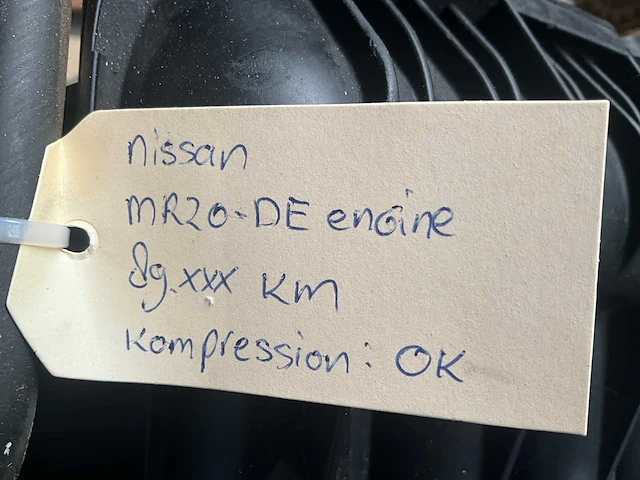 nissan
MR20-DE engine
89.xxx km
Kompression: OK